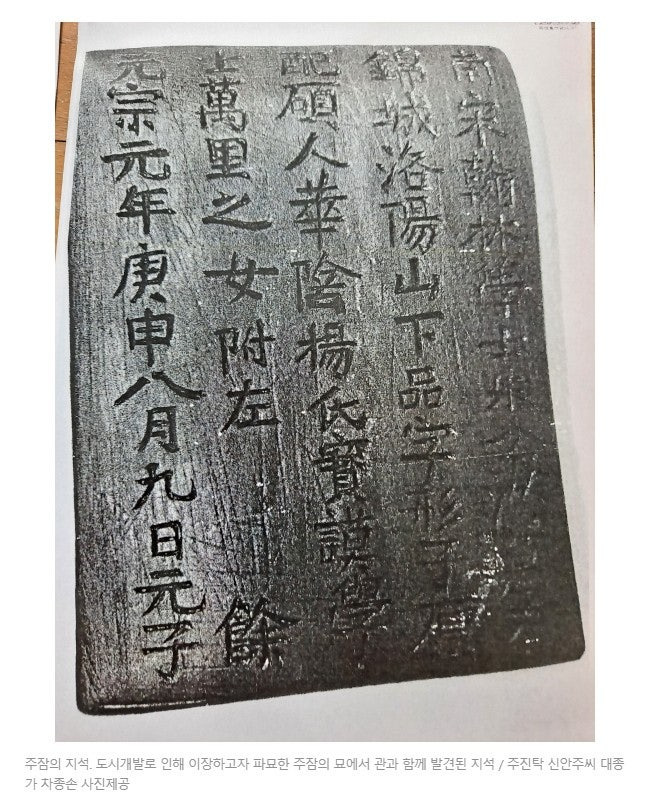 南宋翰林學士
錦城洛陽山下品字形子
配碩人華陰楊氏寶謨學
士萬里之女附左 餘
元宗元年庚申八月九日元子
주잠의 지석. 도시개발로 인해 이장하고자 파묘한 주잠의 묘에서 관과 함께 발견된 지석 / 주진탁 신안주씨 대종
가 차종손 사진제공